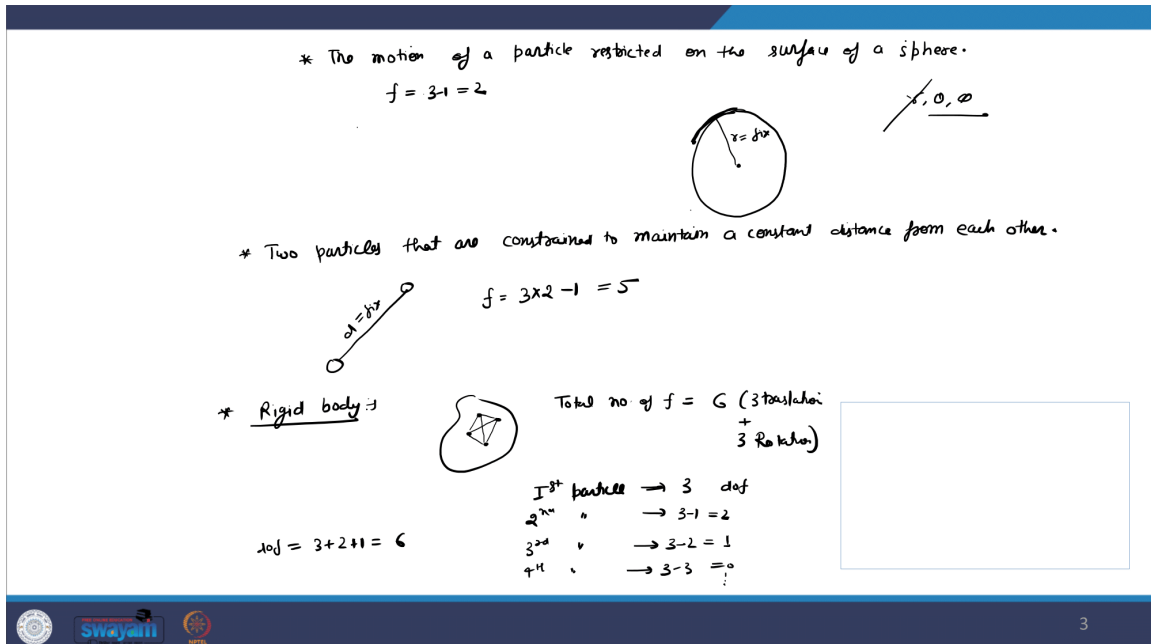 * The motion of a particle restricted on the surface of a sphere.
f = 3-1 = 2
r, θ, φ
r = fix
* Two particles that are constrained to maintain a constant distance from each other.
d = fix
f = 3×2 - 1 = 5
* Rigid body :→
Total no. of f = 6 (3 traslation
+
3 Rotation)
Ist particle → 3 dof
2nd " → 3-1 = 2
3rd " → 3-2 = 1
4th " → 3-3 = 0
dof = 3+2+1 = 6
swayam
NPTEL
3